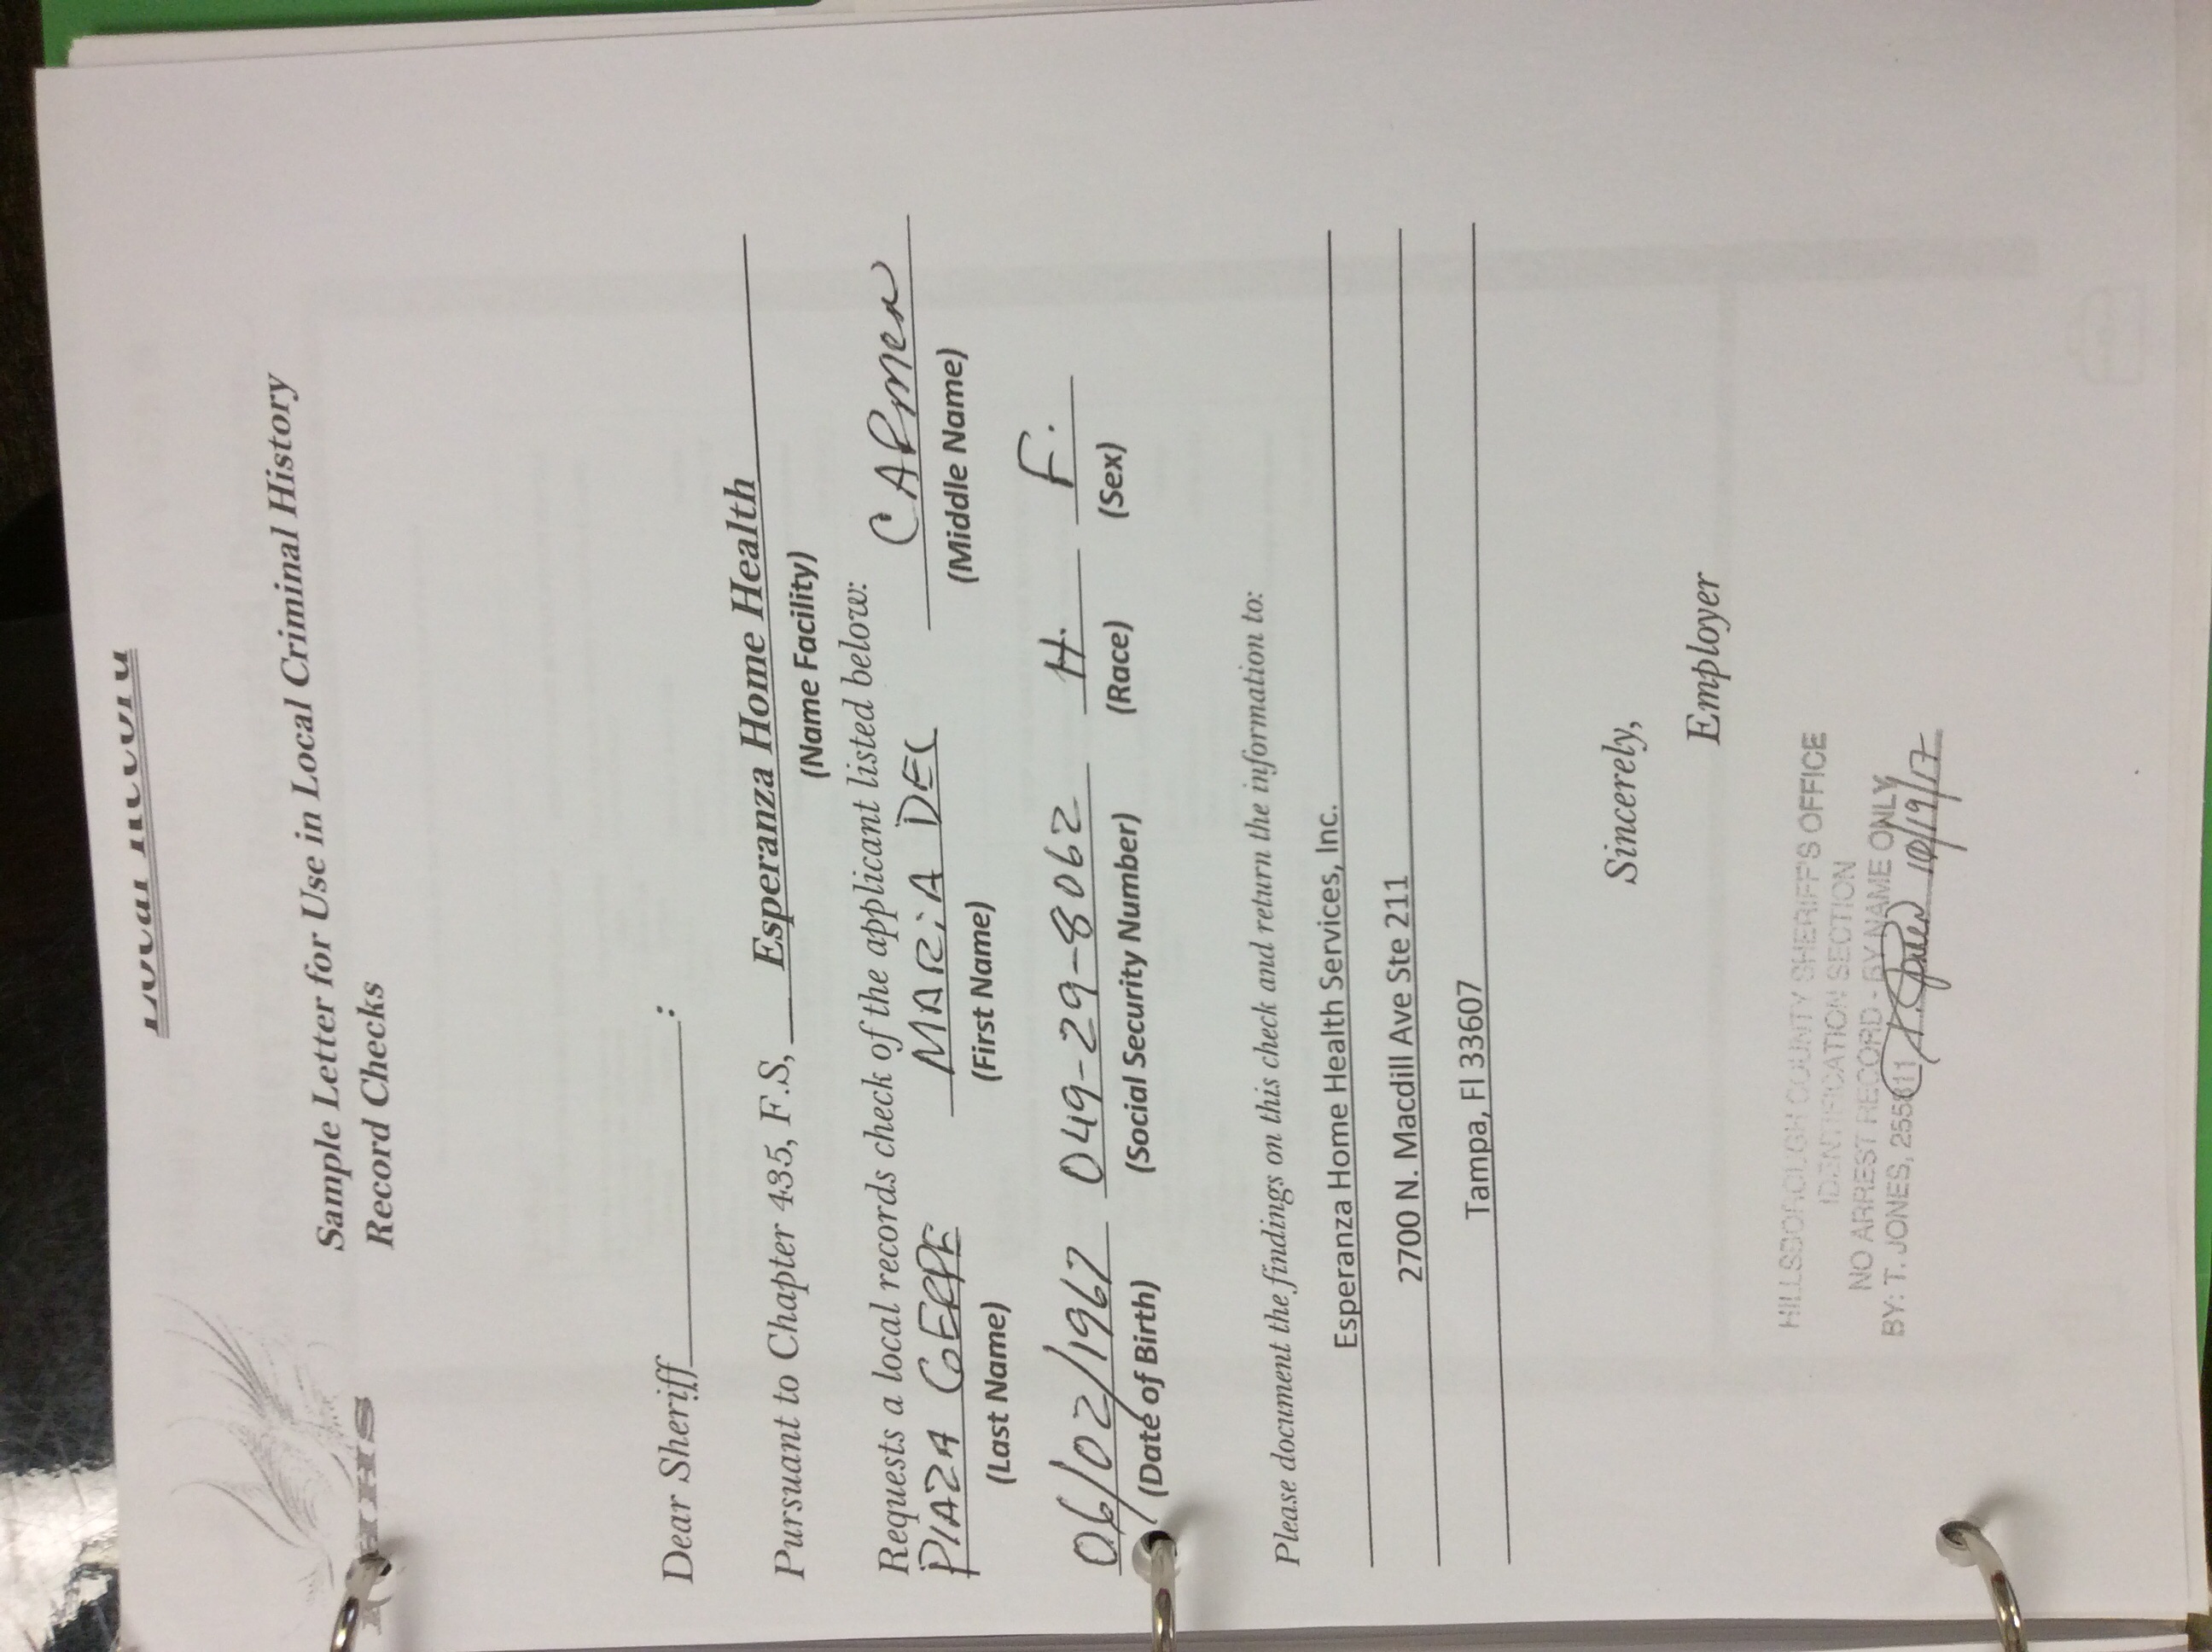 Sample Letter for Use in Local Criminal History
Record Checks
Dear Sheriff :
Pursuant to Chapter 435, F.S, Esperanza Home Health
(Name Facility)
Requests a local records check of the applicant listed below:
MARiA DEL CARmen
(Last Name) (First Name) (Middle Name)
06/02/1967 049-29-8062 H. F.
(Date of Birth) (Social Security Number) (Race) (Sex)
Please document the findings on this check and return the information to:
Esperanza Home Health Services, Inc.
2700 N. Macdill Ave Ste 211
Tampa, Fl 33607
Sincerely,
Employer
HILLSBOROUGH COUNTY SHERIFF'S OFFICE
IDENTIFICATION SECTION
NO ARREST RECORD - BY NAME ONLY
BY: T. JONES, 255811 T. Jones 10/19/17